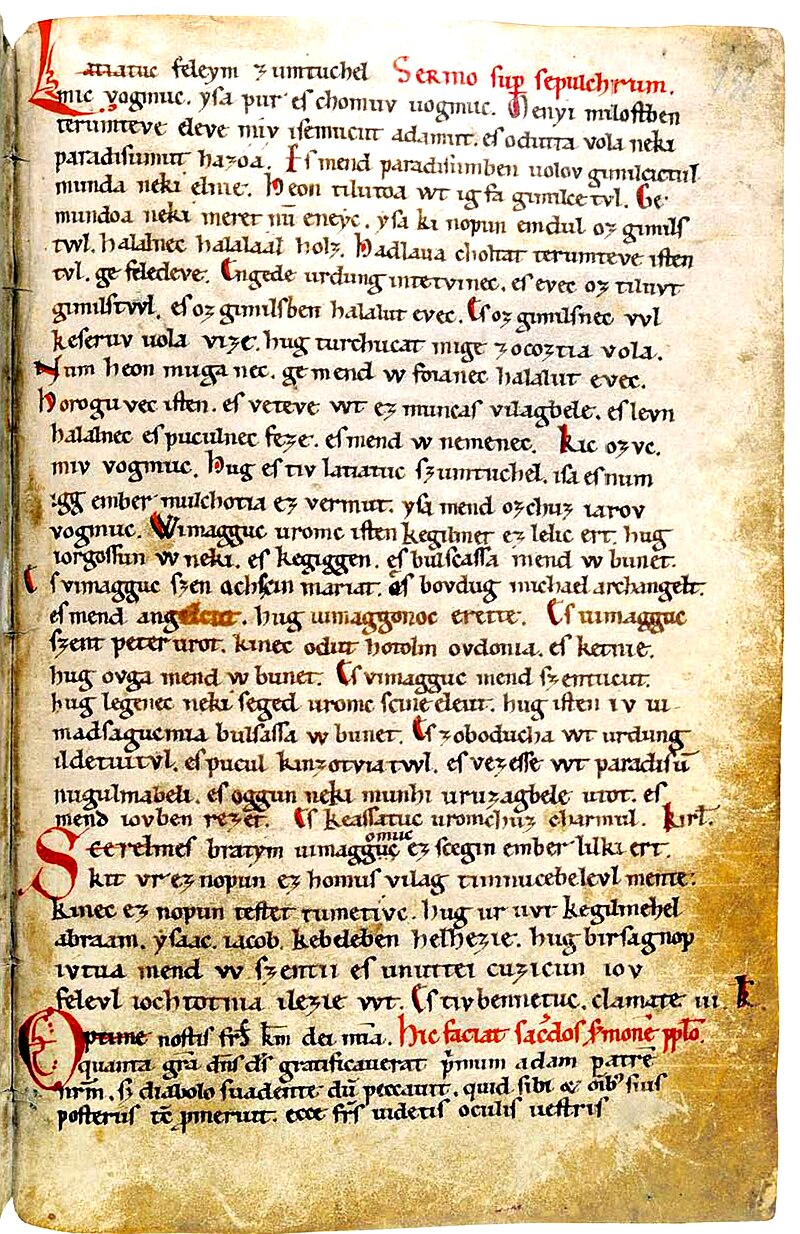 Latiatuc feleym zumtuchel Sermo sup sepulchrum.
mic vogmuc. ysa pur es chomuv uogmuc. Menyi milostben
terumteve eleve miv isemucut adamut. es odutta vola neki
paradisumut hazoa. Es mend paradisumben uolov gimilcictul
munda neki elnie. Heon tilutoa wt ig fa gimilce tvl. Ge
mundoa neki meret nū eneyc. ysa ki nopun emdul oz gimils
twl. halalnec halalaal holz. Hadlaua choltat terumteve isten
tvl. ge feledeve. Engede urdung intetvinec. es evec oz tiluvt
gimilstvvl. es oz gimilsben halalut evec. Es oz gimilsnec vvl
keseruv uola vize. hug turchucat mige zocoztia vola.
Num heon muga nec. ge mend w foianec halalut evec.
Horoguvec isten. es veteve wt ez muncas vilagbele. es levn
halalnec es puculnec feze. es mend w nemenec. Kic ozvc.
miv vogmuc. Hug es tiv latiatuc szumtuchel. isa es num
igg ember mulchotia ez vermut. ysa mend ozchuz iarov
vogmuc. Wimagguc uromc isten kegilmet ez lelic ert. hug
iorgossun w neki. es kegiggen. es bulscassa mend w bunet.
Es vimagguc szen achscin mariat. es bovdug michael archangelt.
es mend angelcut. hug uimaggonoc erette. Es uimagguc
szent peter urot. kinec odut hotolm ovdonia. es ketnie.
hug ovga mend w bunet. Es vimagguc mend szentucut.
hug legenec neki seged uromc scine eleut. hug isten iv ui
madsagucmia bulsassa w bunet. Es zoboducha wt urdung
ildetuitvl. es pucul kinzotviatwl. es vezesse wt paradisū
nugulmabeli. es oggun neki munhi uruzagbele utot. es
mend iovben rezet. Es keassatuc uromchuz charmul. kirł.
Scerelmes bratym uimaggomuc ez scegin ember lilki ert.
kit vr ez nopun ez homus vilag timnucebelevl mente.
kinec ez nopun testet tumetivc. hug ur uvt kegilmehel
abraam. ysaac. iacob. kebeleben helhezie. hug birsagnop
ivtua mend w szentii es unuttei cuzicun iov
felevl iochtotnia ilezie wt. Es tivbennetuc. clamate iii. k.
Optime nostis frs̄ km̄ dei mīa. Hic faciat sac̄dos s̄monē pplo.
quanta grā dn̄s ds̄ gratificauerat p̄mum adam patrē
nrm̄. s; diabolo suadente dū peccauit. quid sibi & oīb' suis
posteris tc̄ pmeruit. ecce frs̄ uidetis oculis uestris